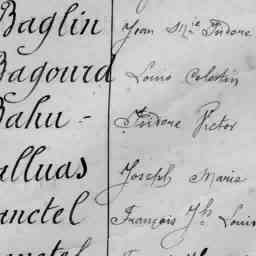 Baglin Jean M.ie Isidore
Bagourd Louis Celestin
Bahu - Isidore Victor
alluas Joseph Marie
anctel François Jh Louis